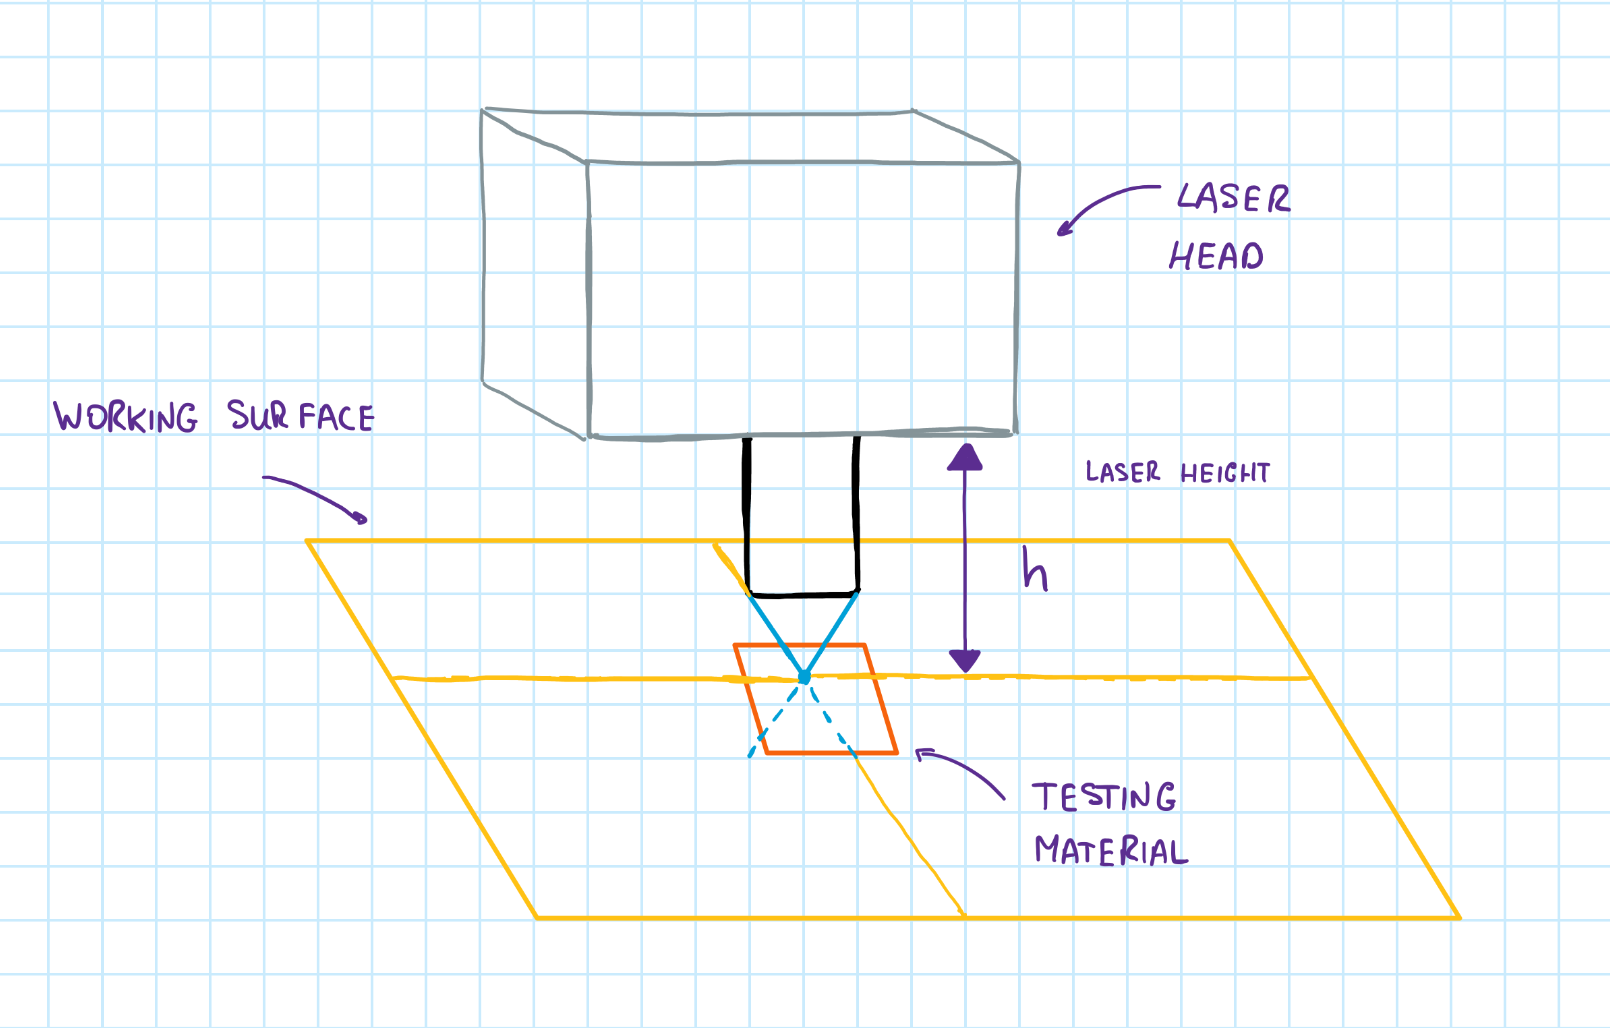 LASER
HEAD
WORKING SURFACE
LASER HEIGHT
h
TESTING
MATERIAL